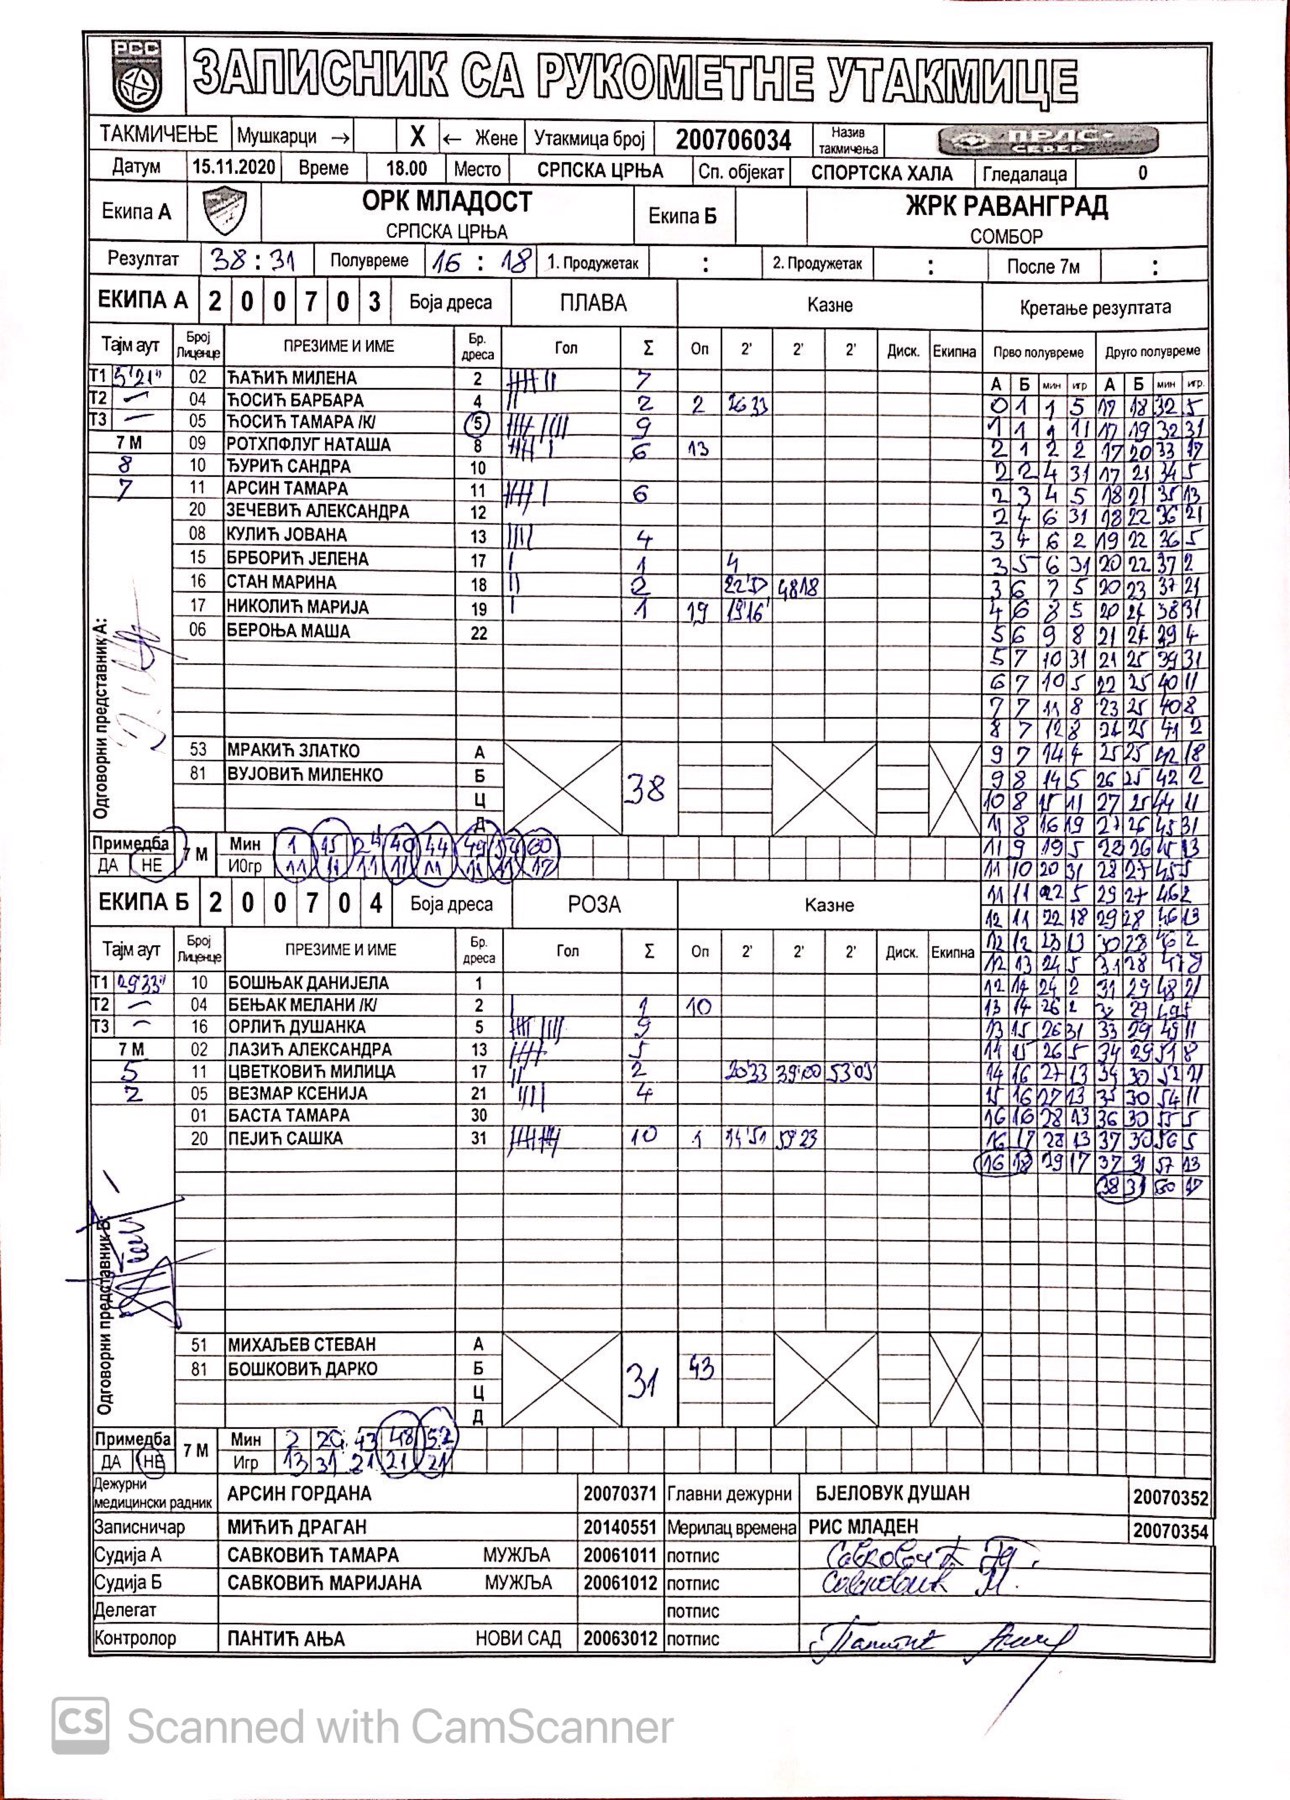 РСС
ЗАПИСНИК СА РУКОМЕТНЕ УТАКМИЦЕ
ТАКМИЧЕЊЕ Мушкарци → X ← Жене Утакмица број 200706034 Назив такмичења ПРЛС - СЕВЕР
Датум 15.11.2020 Време 18.00 Место СРПСКА ЦРЊА Сп. објекат СПОРТСКА ХАЛА Гледалаца 0
Екипа А ОРК МЛАДОСТ СРПСКА ЦРЊА Екипа Б ЖРК РАВАНГРАД СОМБОР
Резултат 38:31 Полувреме 16 : 18 1. Продужетак : 2. Продужетак : После 7м :
ЕКИПА А 2 0 0 7 0 3 Боја дреса ПЛАВА Казне Кретање резултата
Тајм аут Број Лиценце ПРЕЗИМЕ И ИМЕ Бр. дреса Гол Σ Оп 2' 2' 2' Диск. Екипна Прво полувреме Друго полувреме
А Б мин игр А Б мин игр.
Т1 5'21" 02 ЋАЋИЋ МИЛЕНА 2 7
Т2 04 ЋОСИЋ БАРБАРА 4 2 2 2633
Т3 05 ЋОСИЋ ТАМАРА /К/ 5 9
7 М 09 РОТХПФЛУГ НАТАША 8 6 13
8 10 ЂУРИЋ САНДРА 10
7 11 АРСИН ТАМАРА 11 6
20 ЗЕЧЕВИЋ АЛЕКСАНДРА 12
08 КУЛИЋ ЈОВАНА 13 4
15 БРБОРИЋ ЈЕЛЕНА 17 1 4
16 СТАН МАРИНА 18 2 22'57 4818
17 НИКОЛИЋ МАРИЈА 19 1 19 19'16'
06 БЕРОЊА МАША 22
Одговорни представник А:
53 МРАКИЋ ЗЛАТКО А
81 ВУЈОВИЋ МИЛЕНКО Б 38
Ц
Д
Примедба ДА НЕ 7 М Мин 1 15 24 40 44 49 54 60
И0гр 11 11 11 11 11 11 11 17
0 1 1 5 17 18 32 5
1 1 1 11 17 19 32 31
2 1 2 2 17 20 33 17
2 2 4 31 17 21 34 5
2 3 4 5 18 21 35 13
2 4 6 31 18 22 36 21
3 4 6 2 19 22 36 5
3 5 6 31 20 22 37 2
3 6 7 5 20 23 37 21
4 6 8 5 20 24 38 31
5 6 9 8 21 24 39 4
5 7 10 31 21 25 39 31
6 7 10 5 22 25 40 11
7 7 11 8 23 25 40 8
8 7 12 8 24 25 41 2
9 7 14 4 25 25 42 18
9 8 14 5 26 25 42 2
10 8 15 11 27 25 44 11
11 8 16 19 27 26 45 31
11 9 19 5 28 26 45 13
11 10 20 31 28 27 45 5
11 11 22 5 29 27 46 2
12 11 22 18 29 28 46 13
12 12 23 13 30 28 46 2
12 13 24 5 31 28 47 8
12 14 24 2 31 29 48 21
13 14 26 2 32 29 49 5
13 15 26 31 33 29 49 11
14 15 26 5 34 29 51 8
14 16 27 13 34 30 52 21
15 16 27 13 35 30 54 11
16 16 28 13 36 30 55 5
16 17 28 13 37 30 56 5
16 18 29 17 37 31 57 13
38 31 60 17
ЕКИПА Б 2 0 0 7 0 4 Боја дреса РОЗА Казне
Тајм аут Број Лиценце ПРЕЗИМЕ И ИМЕ Бр. дреса Гол Σ Оп 2' 2' 2' Диск. Екипна
Т1 2933" 10 БОШЊАК ДАНИЈЕЛА 1
Т2 04 БЕЊАК МЕЛАНИ /К/ 2 1 10
Т3 16 ОРЛИЋ ДУШАНКА 5 9
7 М 02 ЛАЗИЋ АЛЕКСАНДРА 13 5
5 11 ЦВЕТКОВИЋ МИЛИЦА 17 2 20'33 39'00 53'03
2 05 ВЕЗМАР КСЕНИЈА 21 4
01 БАСТА ТАМАРА 30
20 ПЕЈИЋ САШКА 31 10 1 14'51 5923
Одговорни представник Б:
51 МИХАЉЕВ СТЕВАН А
81 БОШКОВИЋ ДАРКО Б 31 43
Ц
Д
Примедба ДА НЕ 7 М Мин 2 20 43 48 52
Игр 13 31 21 21 21
Дежурни медицински радник АРСИН ГОРДАНА 20070371 Главни дежурни БЈЕЛОВУК ДУШАН 20070352
Записничар МИЋИЋ ДРАГАН 20140551 Мерилац времена РИС МЛАДЕН 20070354
Судија А САВКОВИЋ ТАМАРА МУЖЉА 20061011 потпис Савковић Т.
Судија Б САВКОВИЋ МАРИЈАНА МУЖЉА 20061012 потпис Савковић М.
Делегат потпис
Контролор ПАНТИЋ АЊА НОВИ САД 20063012 потпис Пантић Ања
CS Scanned with CamScanner